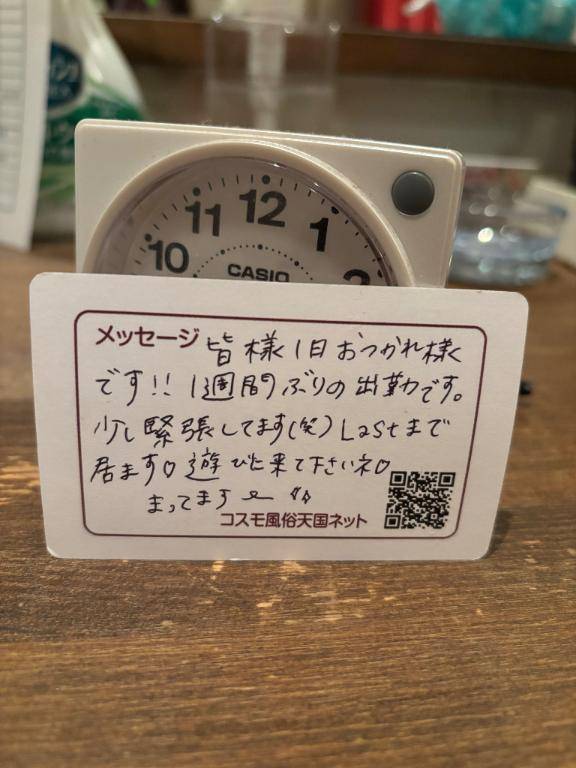 12
11
1
10
2
CASIO
メッセージ 皆様1日おつかれ様
です!! 1週間ぶりの出勤です。
少し緊張してます(笑) Lastまで
居ます♡ 遊びに来て下さいネ♡
まってます〜
コスモ風俗天国ネット